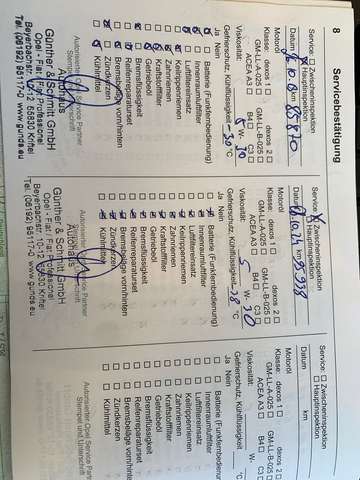 8 Servicebestätigung
Service: Zwischeninspektion
Hauptinspektion
Datum km
Motoröl
Klasse: dexos 1 dexos 2
GM-LL-A-025 GM-LL-B-025
ACEA A3 B4 C3
Viskosität: W-30
Gefrierschutz, Kühlflüssigkeit -30 °C
Ja Nein
Batterie (Funkfernbedienung)
Innenraumluftfilter
Luftfiltereinsatz
Keilrippenriemen
Zahnriemen
Kraftstofffilter
Getriebeöl
Bremsflüssigkeit
Reifenreparaturset
Bremsbeläge vorn/hinten
Zündkerzen
Kühlmittel
Autorisierter Opel Service Partner
Stempel
Autohaus
Günther & Schmitt GmbH
Opel - Fiat - Fiat Professional
65830 Kriftel
Tel. (06192) 96117-0 www.gunds.eu
Service: Zwischeninspektion
Hauptinspektion
Datum km
Motoröl
Klasse: dexos 1 dexos 2
GM-LL-A-025 GM-LL-B-025
ACEA A3 B4 C3
Viskosität: 5 W-30
Gefrierschutz, Kühlflüssigkeit -28 °C
Ja Nein
Batterie (Funkfernbedienung)
Innenraumluftfilter
Luftfiltereinsatz
Keilrippenriemen
Zahnriemen
Kraftstofffilter
Getriebeöl
Bremsflüssigkeit
Reifenreparaturset
Bremsbeläge vorn/hinten
Zündkerzen
Kühlmittel
Autorisierter Opel Service Partner
Autohaus
Günther & Schmitt GmbH
Opel - Fiat - Fiat Professional
65830 Kriftel
Tel. (06192) 96117-0 www.gunds.eu
Service: Zwischeninspektion
Hauptinspektion
Datum km
Motoröl
Klasse: dexos 1 dexos 2
GM-LL-A-025 GM-LL-B-025
ACEA A3 B4 C3
Viskosität: W-
Gefrierschutz, Kühlflüssigkeit °C
Ja Nein
Batterie (Funkfernbedienung)
Innenraumluftfilter
Luftfiltereinsatz
Keilrippenriemen
Zahnriemen
Kraftstofffilter
Getriebeöl
Bremsflüssigkeit
Reifenreparaturset
Bremsbeläge vorn/hinten
Zündkerzen
Kühlmittel
Autorisierter Opel Service
Stempel und Unterschrift